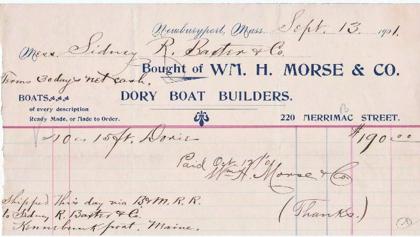 Newburyport, Mass. Sept. 13. 1901.
Mess. Sidney R. Baxter & Co.
Bought of WM. H. MORSE & CO.
Terms 30 days net cash.
BOATS
DORY BOAT BUILDERS.
of every description
Ready Made, or Made to Order.
220 MERRIMAC STREET.
10 - 15 ft. Dories $190.00
Paid Oct. 12 '01
Wm H. Morse & Co
Shipped this day via B & M. R. R.
to Sidney R. Baxter & Co.
Kennebunkport, Maine.
(Thanks.)